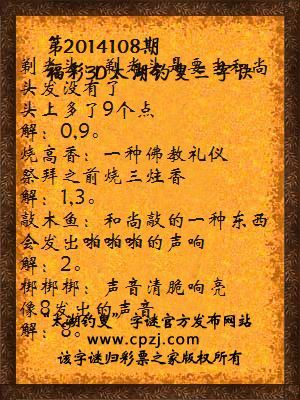 第2014108期
福彩3D太湖钓叟三字诀
剃老头：剃老头是要去和尚
头发没有了
头上多了9个点
解：0,9。
烧高香：一种佛教礼仪
祭拜之前烧三炷香
解：1,3。
敲木鱼：和尚敲的一种东西
会发出啪啪啪的声响
解：2。
梆梆梆：声音清脆响亮
像8发出的声音
解：8。
“太湖钓叟”字谜官方发布网站
www.cpzj.com
该字谜归彩票之家版权所有